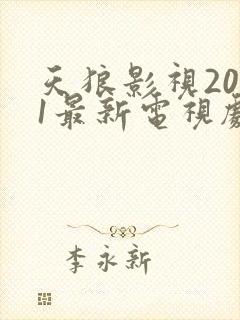 天狼影視20
1最新電視劇
李永新